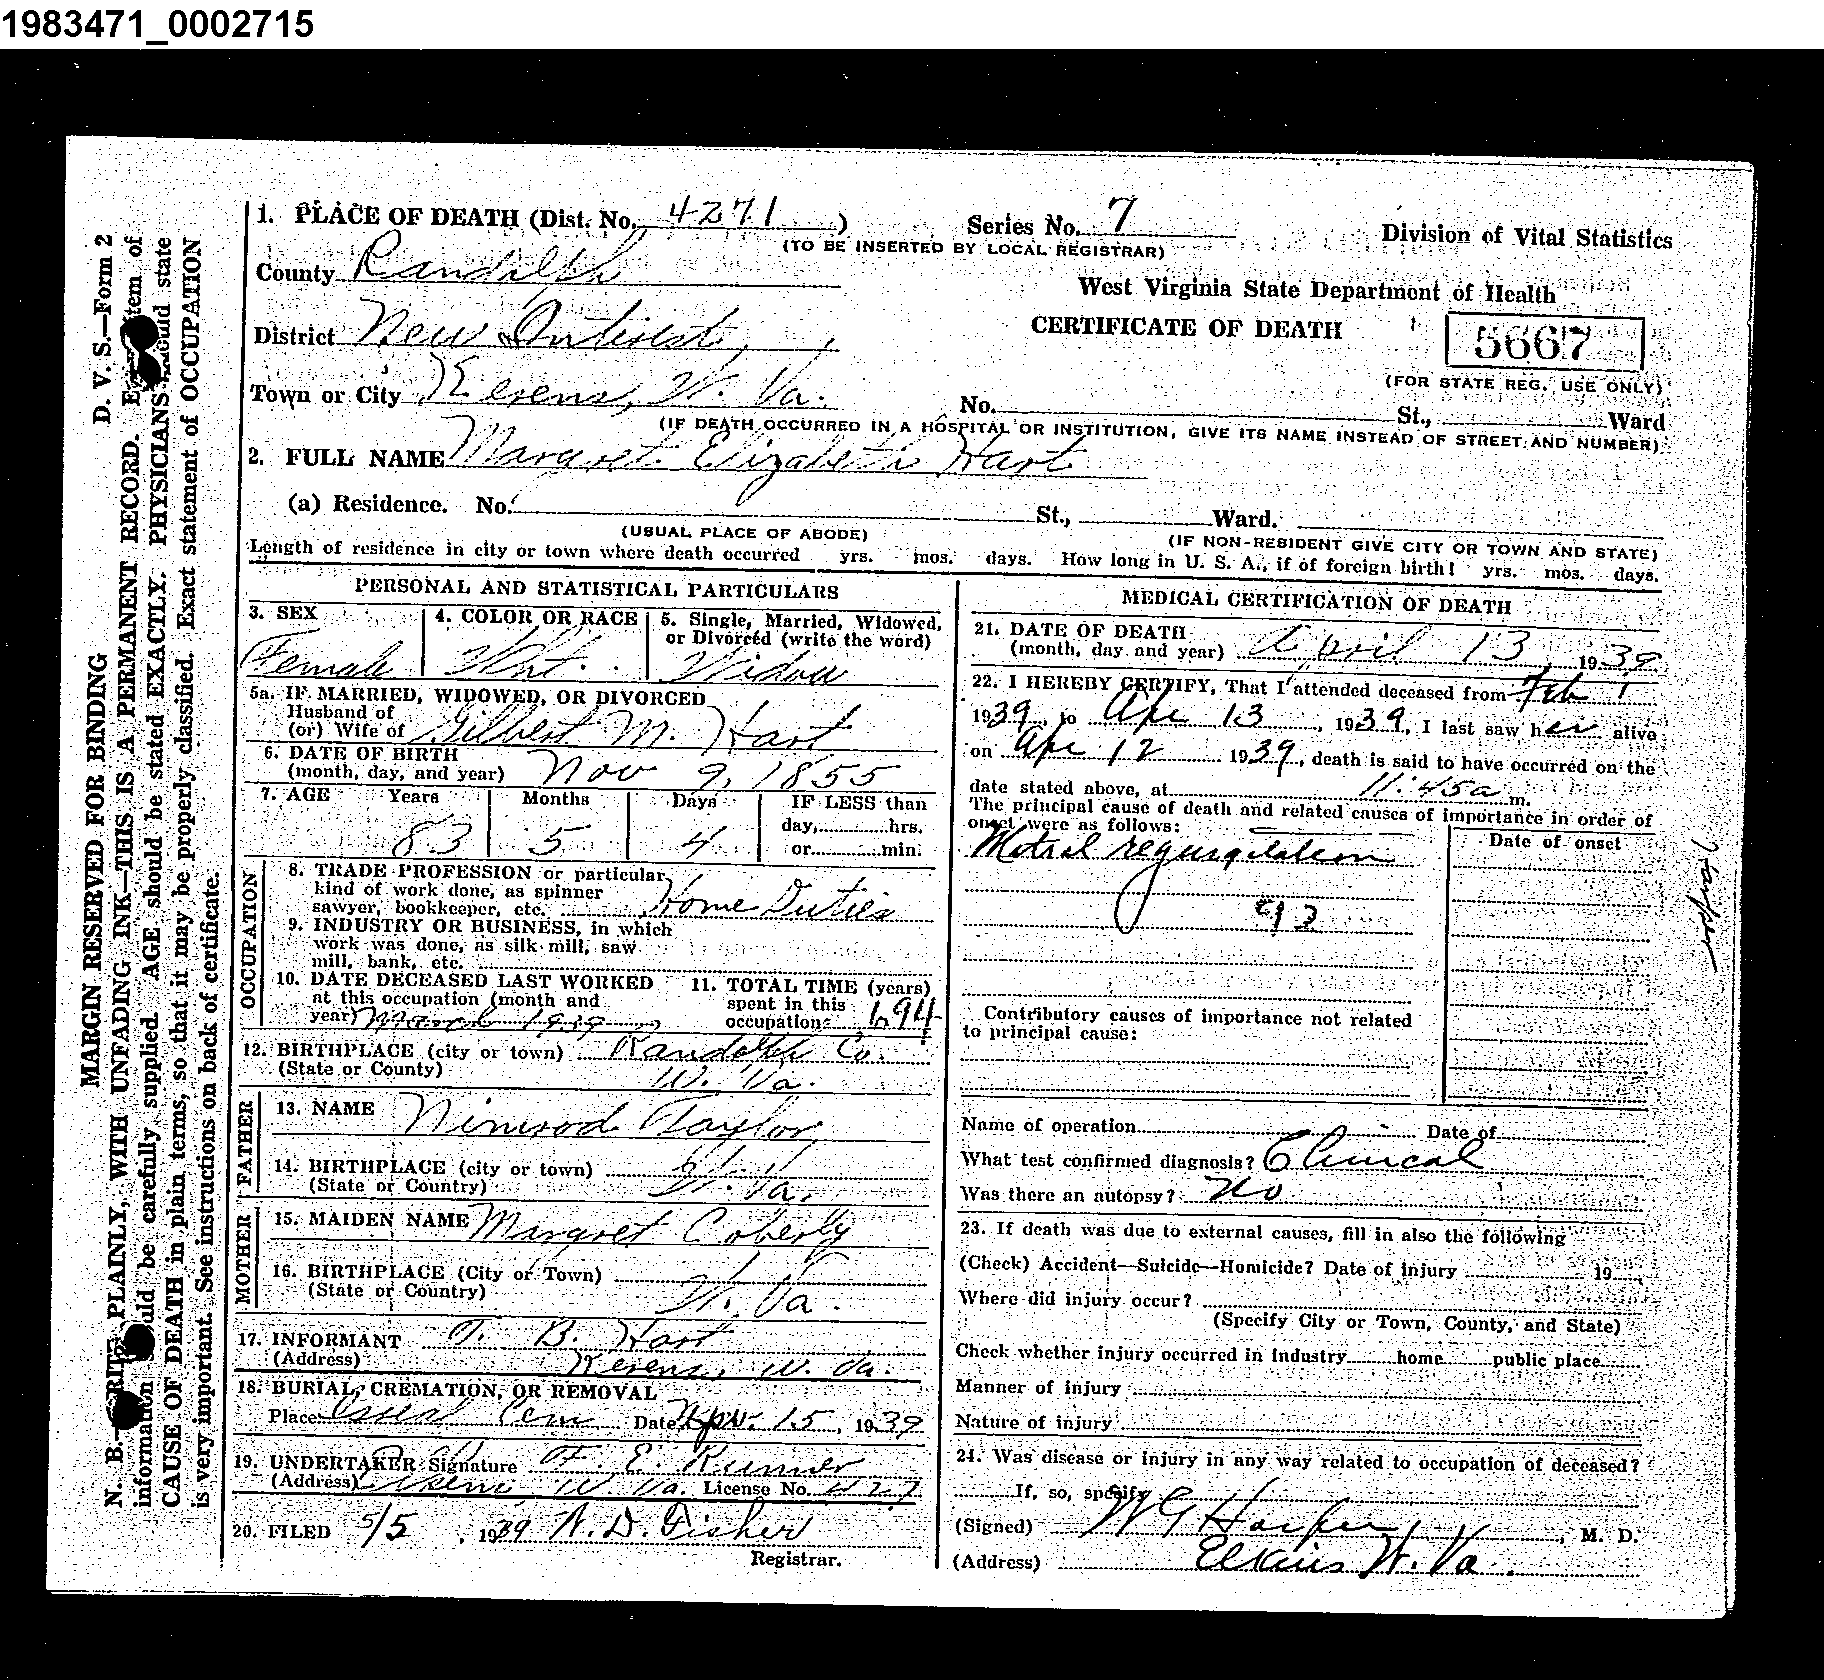 1983471_0002715
MARGIN RESERVED FOR BINDING D. V. S.—Form 2
N. B.— PLAINLY, WITH UNFADING INK—THIS IS A PERMANENT RECORD. item of
information should be carefully supplied. AGE should be stated EXACTLY. PHYSICIANS should state
CAUSE OF DEATH in plain terms, so that it may be properly classified. Exact statement of OCCUPATION
is very important. See instructions on back of certificate.
1. PLACE OF DEATH (Dist. No. 4271 ) Series No. 7 Division of Vital Statistics
(TO BE INSERTED BY LOCAL REGISTRAR)
County Randolph
West Virginia State Department of Health
District New Interest,
CERTIFICATE OF DEATH 5667
(FOR STATE REG. USE ONLY)
Town or City Kerens, W. Va. No. St., Ward
(IF DEATH OCCURRED IN A HOSPITAL OR INSTITUTION, GIVE ITS NAME INSTEAD OF STREET AND NUMBER)
2. FULL NAME Margret Elizabeth Hart
(a) Residence. No. St., Ward.
(USUAL PLACE OF ABODE) (IF NON-RESIDENT GIVE CITY OR TOWN AND STATE)
Length of residence in city or town where death occurred yrs. mos. days. How long in U. S. A., if of foreign birth? yrs. mos. days.
PERSONAL AND STATISTICAL PARTICULARS
3. SEX 4. COLOR OR RACE 5. Single, Married, Widowed,
or Divorced (write the word)
Female Wht. Widow
5a. IF MARRIED, WIDOWED, OR DIVORCED
Husband of
(or) Wife of Gilbert M. Hart
6. DATE OF BIRTH
(month, day, and year) Nov 9, 1855
7. AGE Years Months Days IF LESS than
day, hrs.
or min.
83 5 4
OCCUPATION
8. TRADE PROFESSION or particular
kind of work done, as spinner
sawyer, bookkeeper, etc. Home Duties
9. INDUSTRY OR BUSINESS, in which
work was done, as silk mill, saw
mill, bank, etc.
10. DATE DECEASED LAST WORKED 11. TOTAL TIME (years)
at this occupation (month and spent in this
year) March 1939 occupation
12. BIRTHPLACE (city or town) Randolph Co.
(State or County) W. Va.
FATHER
13. NAME Nimrod Taylor
14. BIRTHPLACE (city or town) W. Va.
(State or Country)
MOTHER
15. MAIDEN NAME Margret Coberly
16. BIRTHPLACE (City or Town)
(State or Country) W. Va.
17. INFORMANT T. B. Hart
(Address) Kerens, W. Va.
18. BURIAL, CREMATION, OR REMOVAL
Place Cem Date Apr. 15, 1939
19. UNDERTAKER Signature F. E. Runner
(Address) W. Va. License No. 427
20. FILED 5/5, 1939 W. D. Fisher
Registrar.
MEDICAL CERTIFICATION OF DEATH
21. DATE OF DEATH
(month, day and year) April 13, 1939
22. I HEREBY CERTIFY, That I attended deceased from Feb 1
1939, to Apr 13, 1939, I last saw her alive
on Apr 12 1939, death is said to have occurred on the
date stated above, at 11:45a m.
The principal cause of death and related causes of importance in order of
onset were as follows: Date of onset
Mitral regurgitation
Harper
Contributory causes of importance not related
to principal cause:
Name of operation Date of
What test confirmed diagnosis? Clinical
Was there an autopsy? No
23. If death was due to external causes, fill in also the following
(Check) Accident—Suicide—Homicide? Date of injury 19
Where did injury occur?
(Specify City or Town, County, and State)
Check whether injury occurred in industry home public place
Manner of injury
Nature of injury
24. Was disease or injury in any way related to occupation of deceased?
If, so, specify
(Signed) W G Harper, M. D.
(Address) Elkins W. Va.